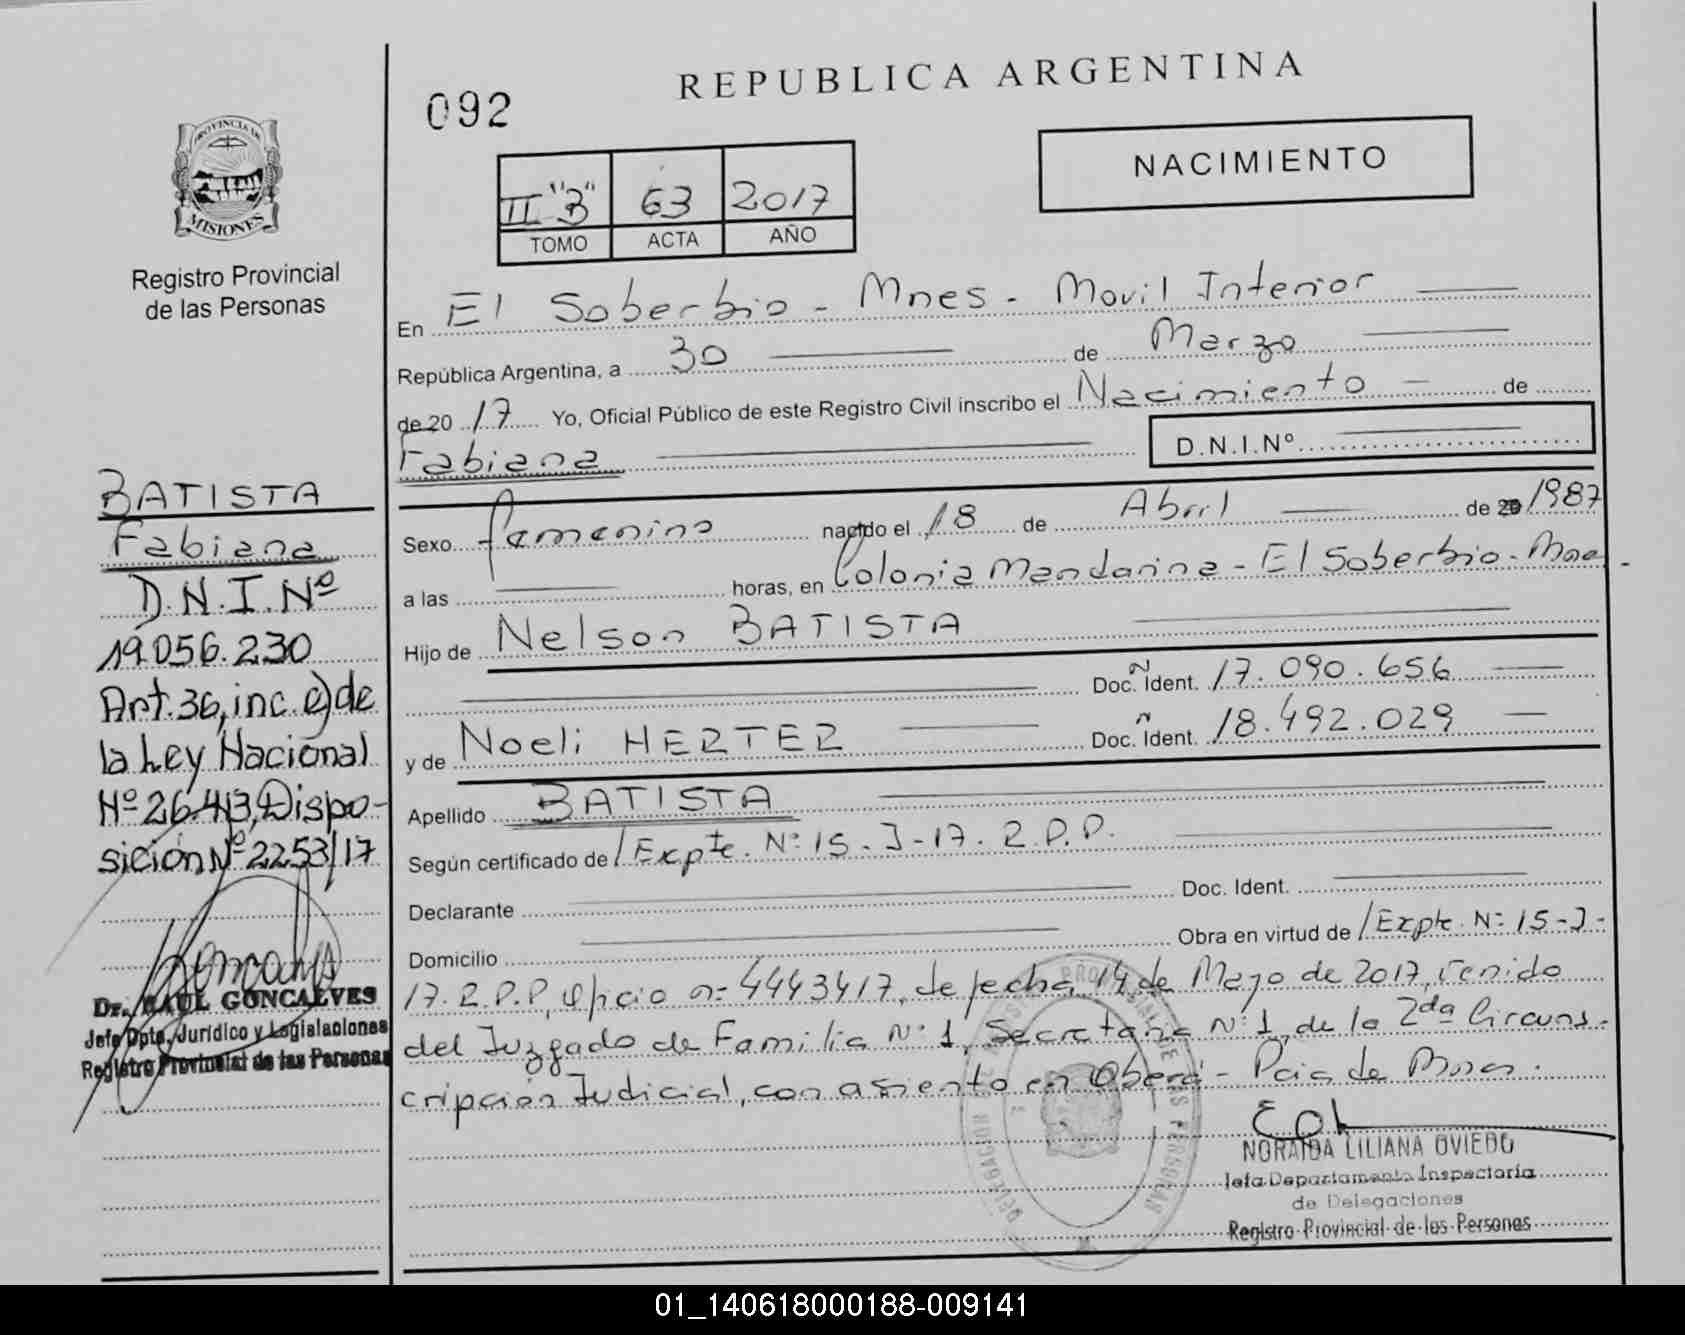 REPUBLICA ARGENTINA
092
NACIMIENTO
II "B" 63 2017
TOMO ACTA AÑO
PROVINCIA DE
MISIONES
Registro Provincial
de las Personas
En El Soberbio - Mnes - Movil Interior
República Argentina, a 30 de Marzo
de 20 17 Yo, Oficial Público de este Registro Civil inscribo el Nacimiento de
Fabiana D.N.I.Nº
Sexo femenino nacido el 18 de Abril de 20 1987
a las horas, en Colonia Mandarina - El Soberbio - Mnes -
Hijo de Nelson BATISTA
Doc. Ident. 17.090.656
y de Noeli HERTER Doc. Ident. 18.492.029
Apellido BATISTA
Según certificado de / Expte. Nº 15-J-17. R.P.P.
Declarante Doc. Ident.
Domicilio Obra en virtud de / Expte. Nº 15-J-
17. R.P.P, oficio nº 4443417, de fecha 14 de Mayo de 2017, venido
del Juzgado de Familia Nº 1, Secretaria Nº 1, de la 2da Circuns-
cripción Judicial, con asiento en Oberá - Pcia de Mnes.
NORAIDA LILIANA OVIEDO
Jefa Departamento Inspectoría
de Delegaciones
Registro Provincial de las Personas
BATISTA
Fabiana
D.N.I.Nº
19.056.230
Art. 36, inc. c) de
la Ley Nacional
Nº 26.413, Dispo-
sición Nº 2253/17
Dr. RAUL GONCALVES
Jefe Dpto. Jurídico y Legislaciones
Registro Provincial de las Personas
01_140618000188-009141